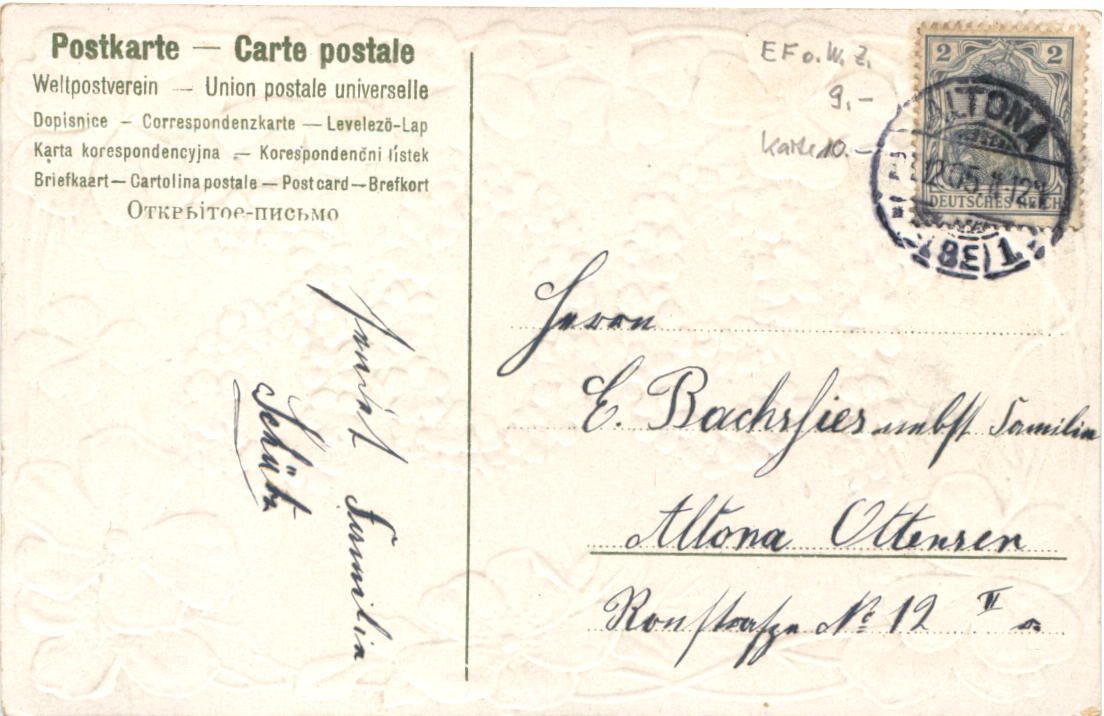 Postkarte — Carte postale
Weltpostverein — Union postale universelle
Dopisnice — Correspondenzkarte — Levelező-Lap
Karta korespondencyjna — Korespondenční lístek
Briefkaart — Cartolina postale — Post card — Brefkort
Открытое-письмо
E F o. W. Z.
9.-
Karte 10.-
2 2
DEUTSCHES REICH
ALTONA
12.05
BE 1
Herrn
E. nebst Familie
Altona Ottensen
No 12 II
Familie
Schütz